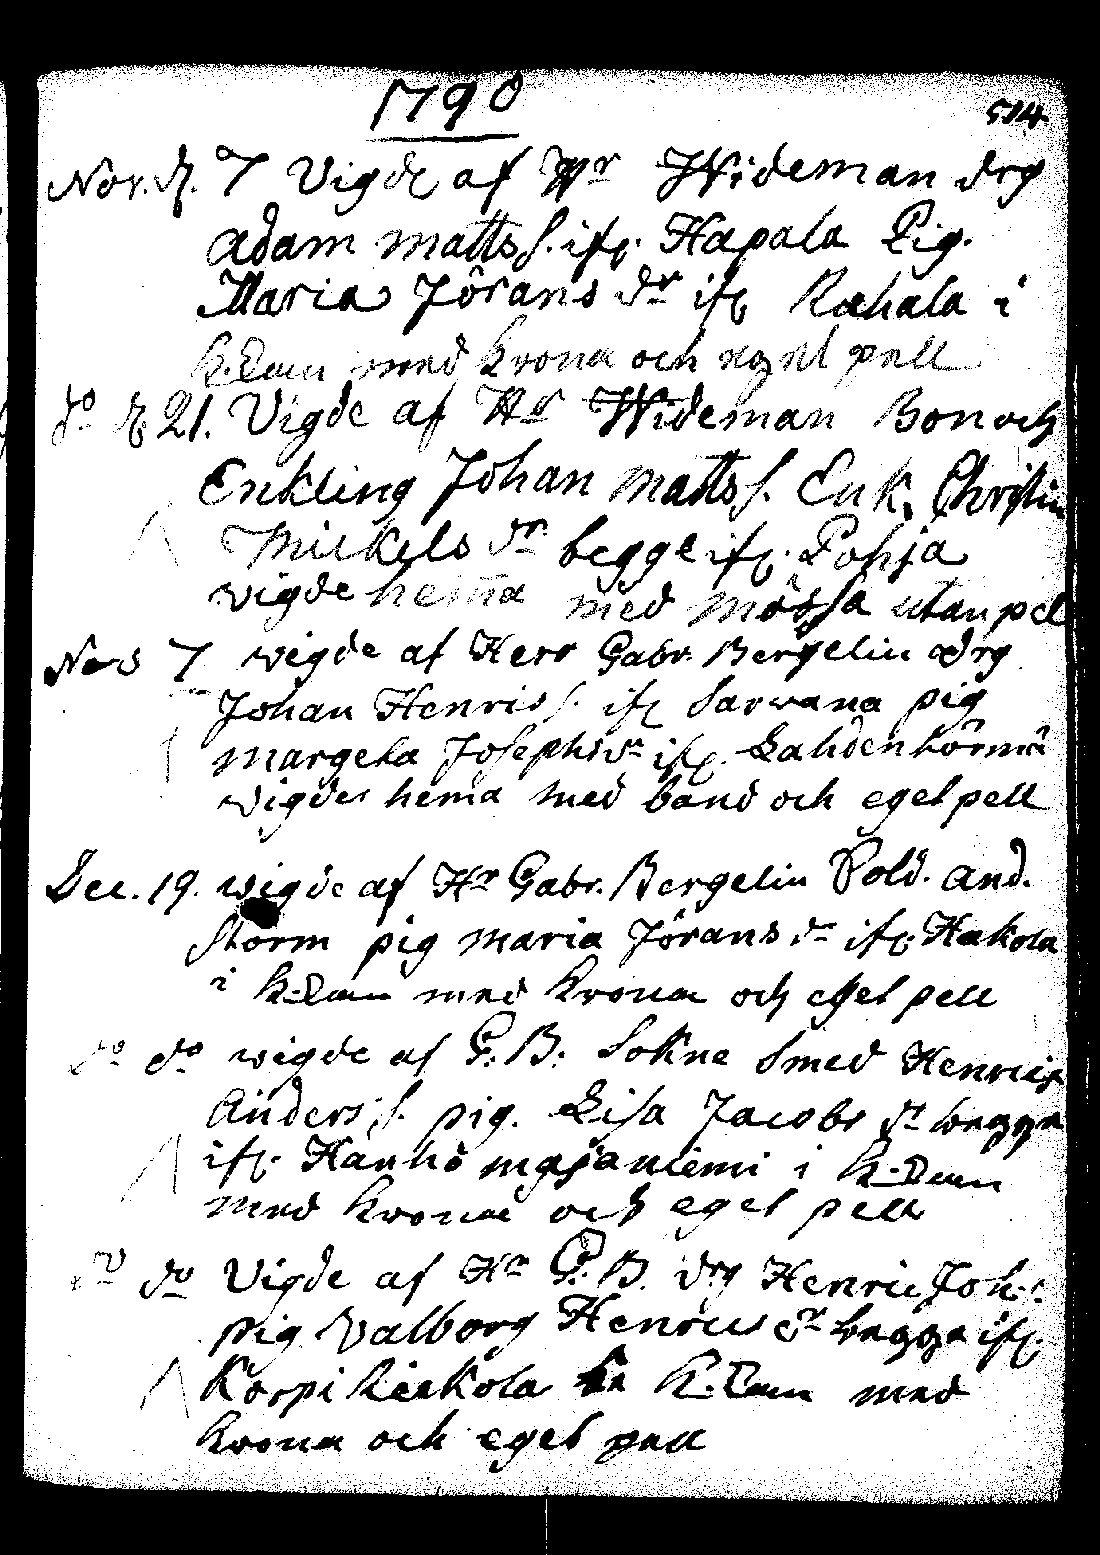 1790
514.
Nov. d. 7 Vigde af Hr Wideman drg
Adam Matts s. ifr. Hapala Pig.
Maria Jörans dr ifr Rahala i
K. Dam med krona och egel pell
do d 21. Vigde af Hr Wideman Bon och
Enkling Johan Matts s. Enk. Christin
Mickels dr begge ifr. Pohja
vigde hema med mössa utan pel
Nov 7 wigde af Herr Gabr. Bergelin drg
Johan Henrics s. ifr Sarwana pig
Margeta Josephs dr ifr. Lahdenkörmä
vigdes hema med band och egel pell
Dec. 19. wigde af Hr Gabr. Bergelin Sold. And.
Storm pig Maria Jörans dr ifr. Hakola
i K. Dam med krona och egel pell
do do wigde af G. B. Sokne Smed Henric
Anders s. pig. Lisa Jacobs dr begge
ifr. Hanhi i K. Dam
med krona och egel pell
do do Vigde af Hr G. B. drg Henric Joh. s.
pig Valborg Henrics dr begge ifr.
Korpi K. Dam med
krona och egel pell